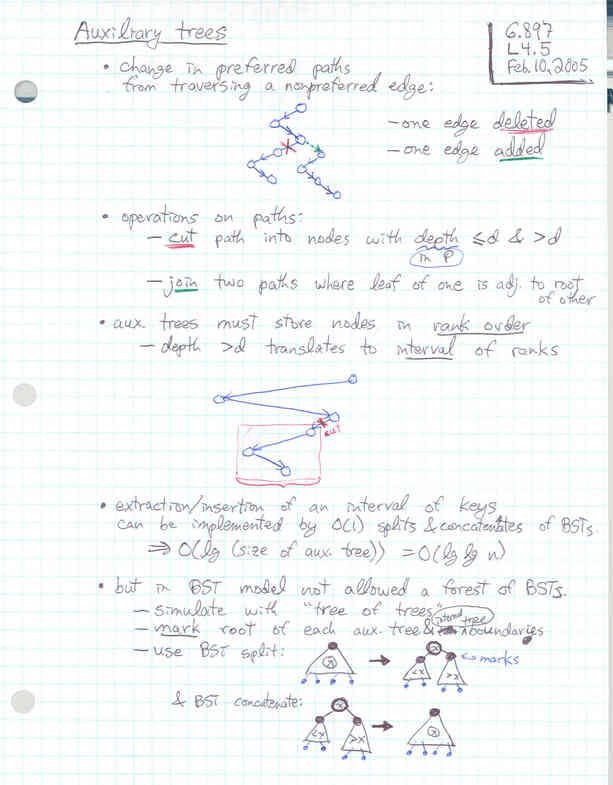 Auxiliary trees
6.897
L4.5
Feb. 10, 2005
• change in preferred paths
from traversing a nonpreferred edge:
– one edge deleted
– one edge added
• operations on paths:
– cut path into nodes with depth ≤d & >d
in P
– join two paths where leaf of one is adj. to root
of other
• aux. trees must store nodes in rank order
– depth >d translates to interval of ranks
cut
• extraction/insertion of an interval of keys
can be implemented by O(1) splits & concatenates of BSTs.
⇒ O(lg (size of aux. tree)) = O(lg lg n)
• but in BST model not allowed a forest of BSTs.
– simulate with "tree of trees"
internal tree
– mark root of each aux. tree & boundaries
– use BST split:
x
x
<x
>x
marks
& BST concatenate:
x
<x
>x
x